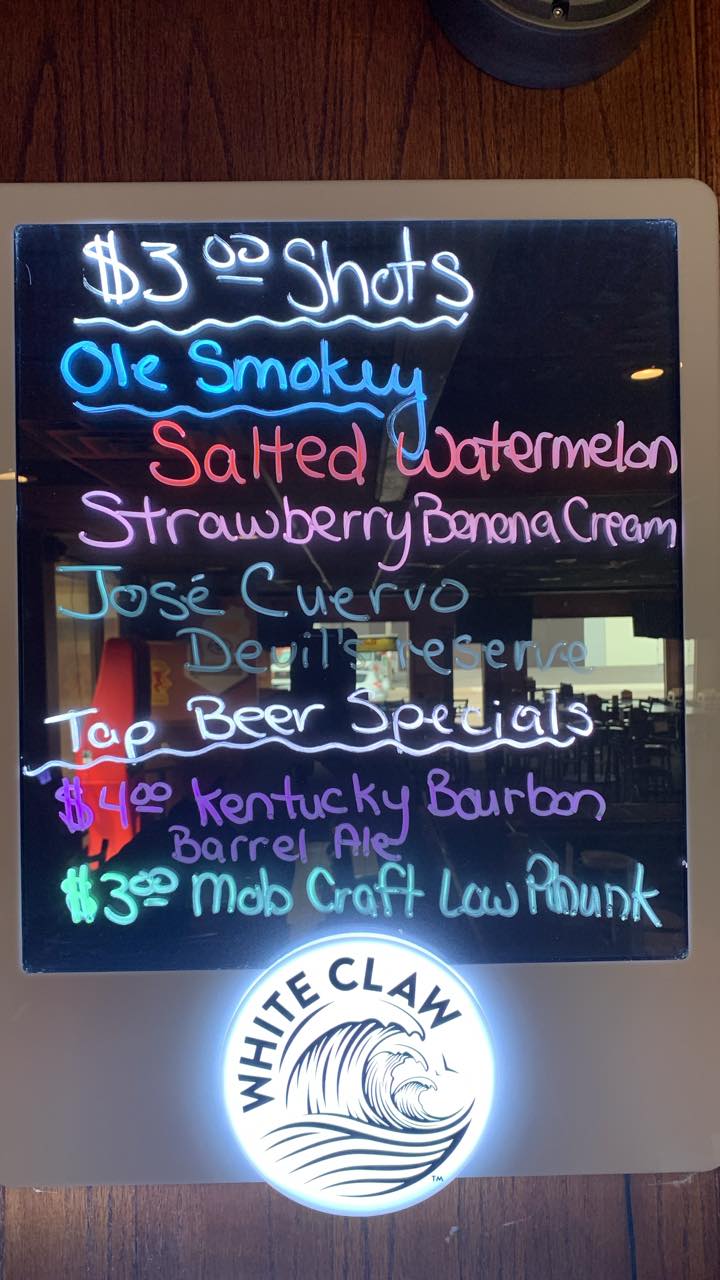 $3.00 Shots
Ole Smokey
Salted Watermelon
Strawberry Banana Cream
José Cuervo
Devil's reserve
Tap Beer Specials
$4.00 Kentucky Bourbon
Barrel Ale
$3.00 Mob Craft Low Phunk
WHITE CLAW
TM